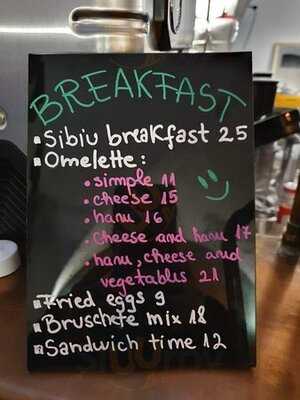 BREAKFAST
Sibiu breakfast 25
Omelette:
simple 11
cheese 15
hamu 16
cheese and hamu 17
hamu, cheese and
vegetables 21
Fried eggs 9
Bruschete mix 18
Sandwich time 12